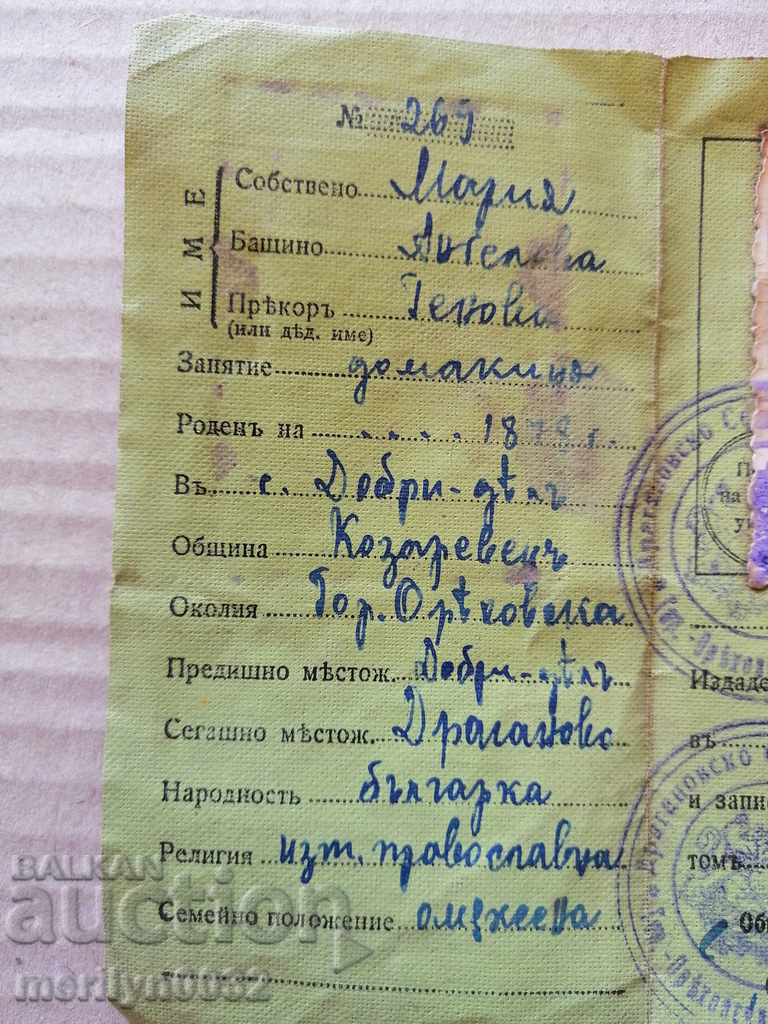 № 269
ИМЕ
Собствено Мария
Бащино Ангелова
Прѣкоръ Генова
(или дѣд. име)
Занятие домакиня
Роденъ на .... 1878 г.
Въ с. Добри-дѣлъ
Община Козаревецъ
Околия Гор. Орѣховска
Предишно мѣстож. Добри-дѣлъ
Сегашно мѣстож. Драганово
Народность българка
Религия изт. православна
Семейно положение омѫжена
Издаде
въ
и запис
томъ
Об
BALKAN
auction
merilyn0032